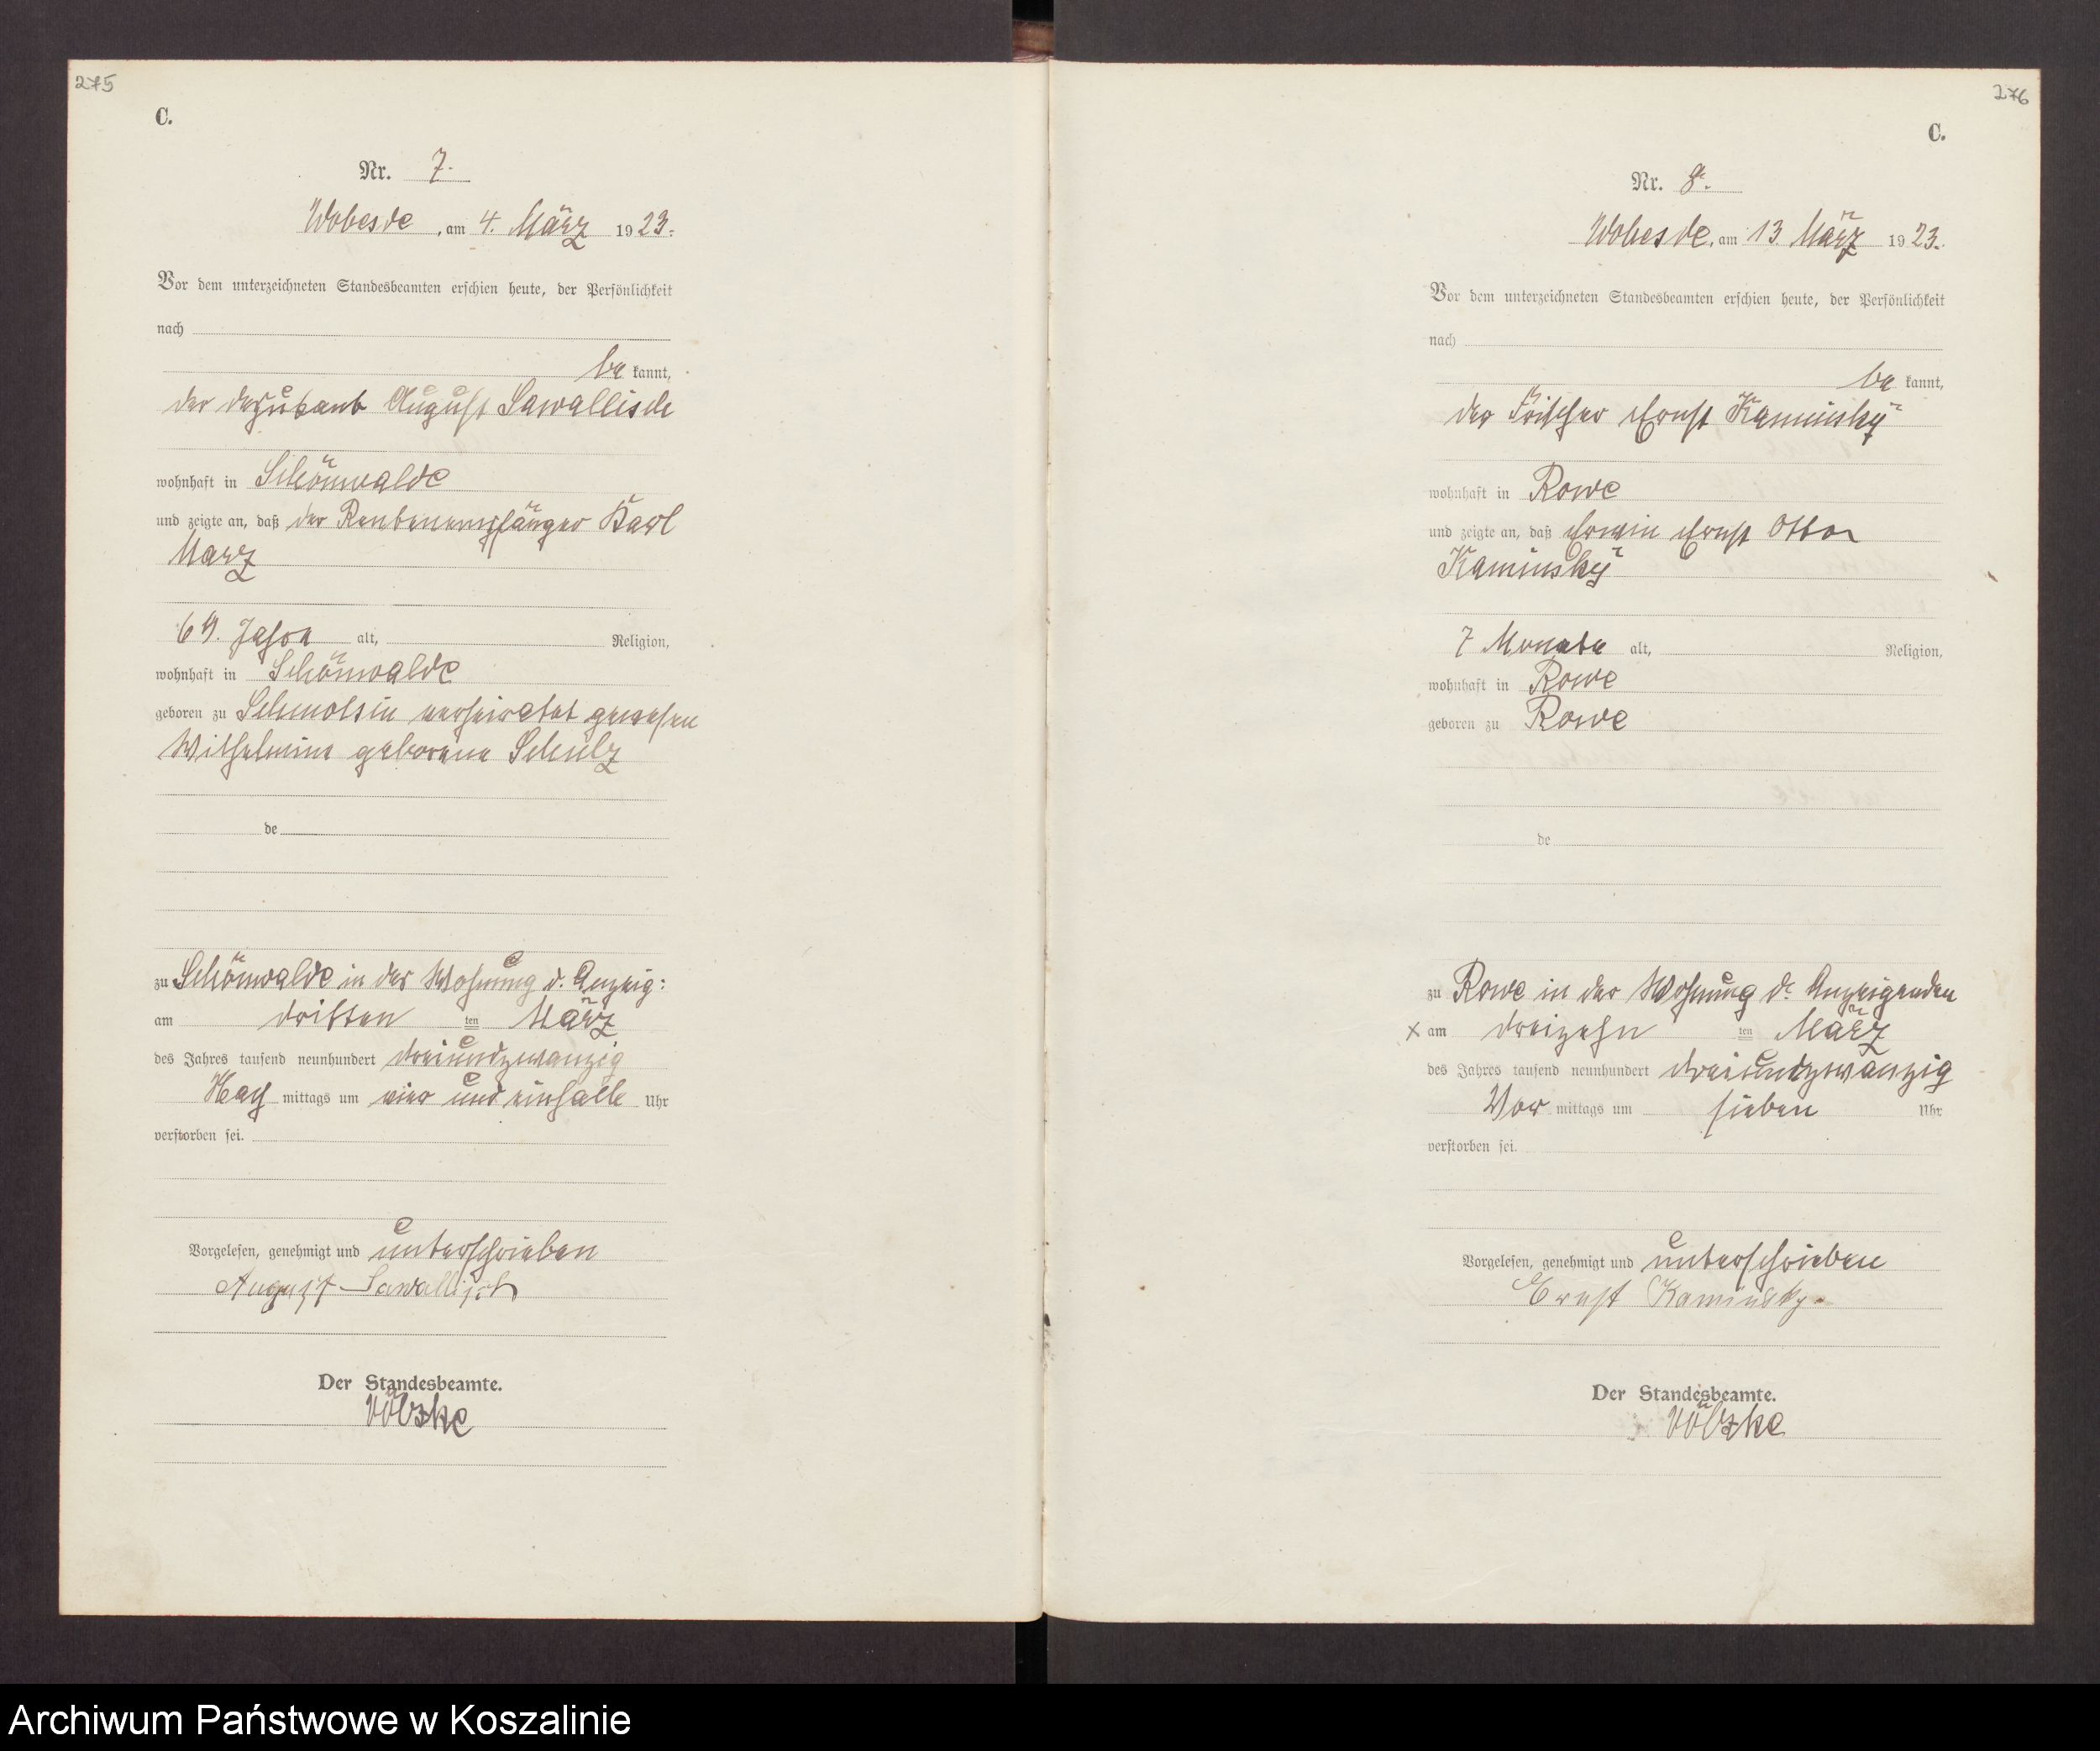 275
C.
Nr. 7.
Wobesde, am 4. März 1923.
Vor dem unterzeichneten Standesbeamten erschien heute, der Persönlichkeit
nach
be kannt,
der Deputant August Sawallisch
wohnhaft in Schönwalde
und zeigte an, daß der Rentenempfänger Karl
Marz
69. Jahre alt, Religion,
wohnhaft in Schönwalde
geboren zu Schmolsin verheiratet gewesen
Wilhelmine geborene Schulz
de
zu Schönwalde in der Wohnung d. Anzeig:
am dritten ten März
des Jahres tausend neunhundert dreiundzwanzig
Nach mittags um vier und einhalb Uhr
verstorben sei.
Vorgelesen, genehmigt und unterschrieben
August Sawallisch
Der Standesbeamte.
Völzke
276
C.
Nr. 8.
Wobesde, am 13. März 1923.
Vor dem unterzeichneten Standesbeamten erschien heute, der Persönlichkeit
nach
be kannt,
der Fischer Ernst Kaminsky
wohnhaft in Rowe
und zeigte an, daß Erwin Ernst Otto
Kaminsky
7 Monate alt, Religion,
wohnhaft in Rowe
geboren zu Rowe
de
zu Rowe in der Wohnung d. Anzeigenden
x am dreizehn ten März
des Jahres tausend neunhundert dreiundzwanzig
Vor mittags um sieben Uhr
verstorben sei.
Vorgelesen, genehmigt und unterschrieben
Ernst Kaminsky.
Der Standesbeamte.
Völzke
Archiwum Państwowe w Koszalinie